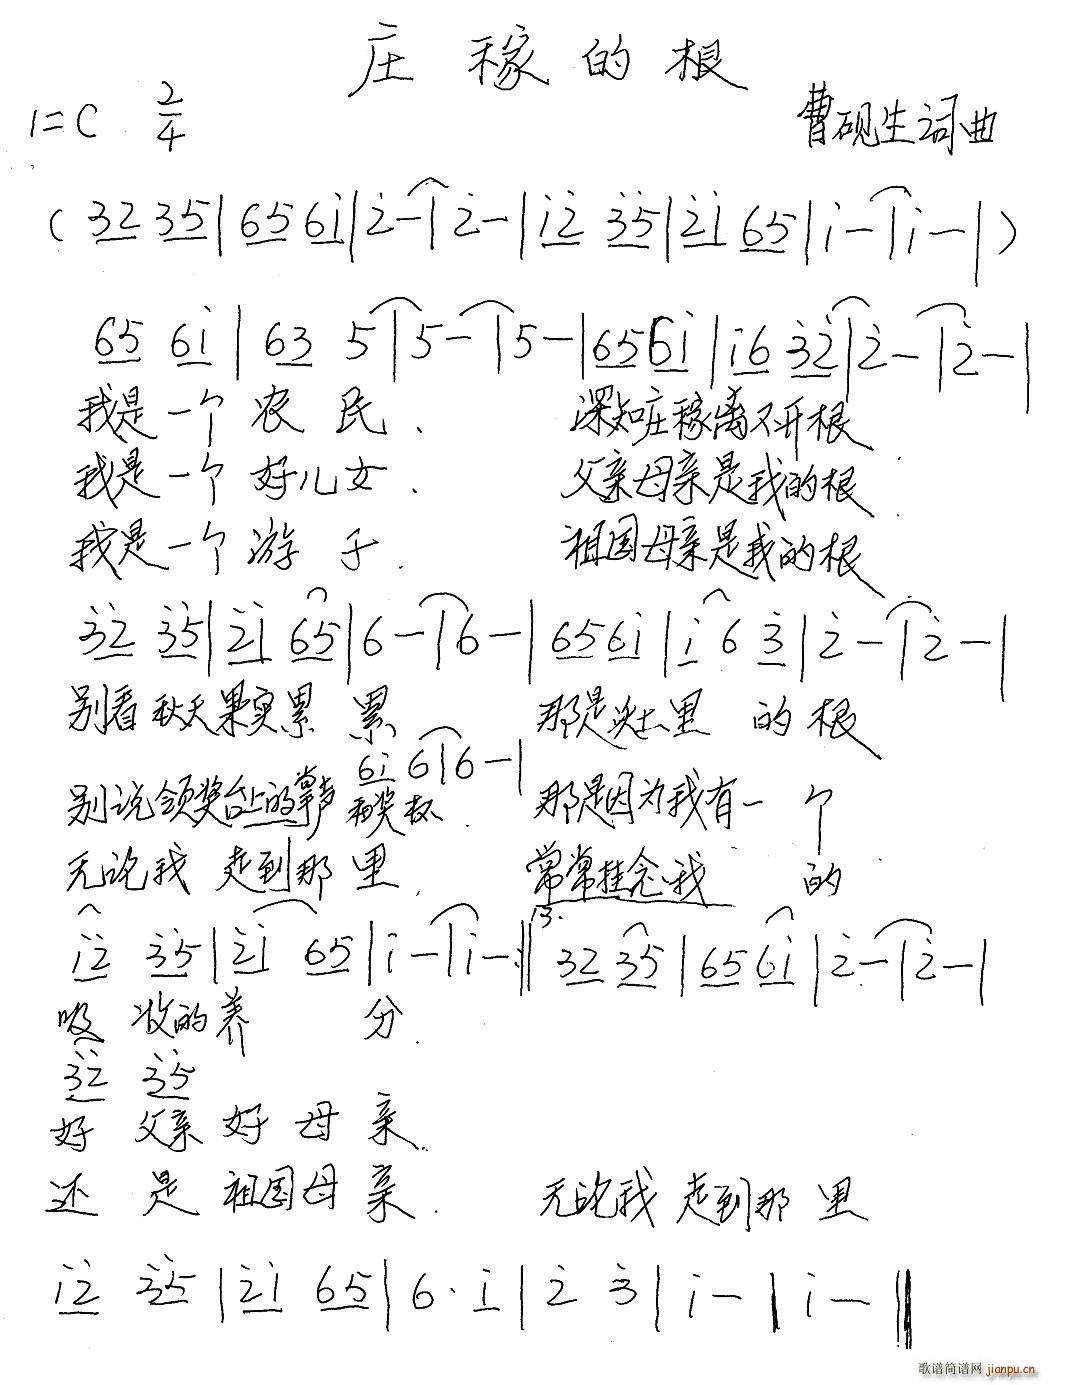 庄稼的根
1=C 2/4
曹砚生词曲
( 32 35 | 65 6i | 2̇ - | 2̇ - | i2̇ 3̇5̇ | 2̇i 65 | i - | i - | )
65 6i | 63 5 | 5 - | 5 - | 65 6i | i6 3̇2̇ | 2̇ - | 2̇ - |
我是一个农民. 深知庄稼离不开根
我是一个好儿女. 父亲母亲是我的根.
我是一个游子. 祖国母亲是我的根
3̇2̇ 3̇5̇ | 2̇i 65 | 6 - | 6 - | 65 6i | i 6 3̇ | 2̇ - | 2̇ - |
别看秋天果实累累 那是 里的根
6i 6 | 6 - |
别说领奖台上的掌声和奖杯. 那是因为我有一个
无论我走到那里. 常常挂念我的
i2̇ 3̇5̇ | 2̇i 65 | i - | i - :‖ 13. 32 35 | 65 6i | 2̇ - | 2̇ - |
吸收的养分.
3̇2̇ 3̇5̇
好父亲好母亲.
还是祖国母亲. 无论我走到那里
i2̇ 3̇5̇ | 2̇i 65 | 6· i | 2̇ 3̇ | i - | i - ‖
歌谱简谱网 jianpu.cn